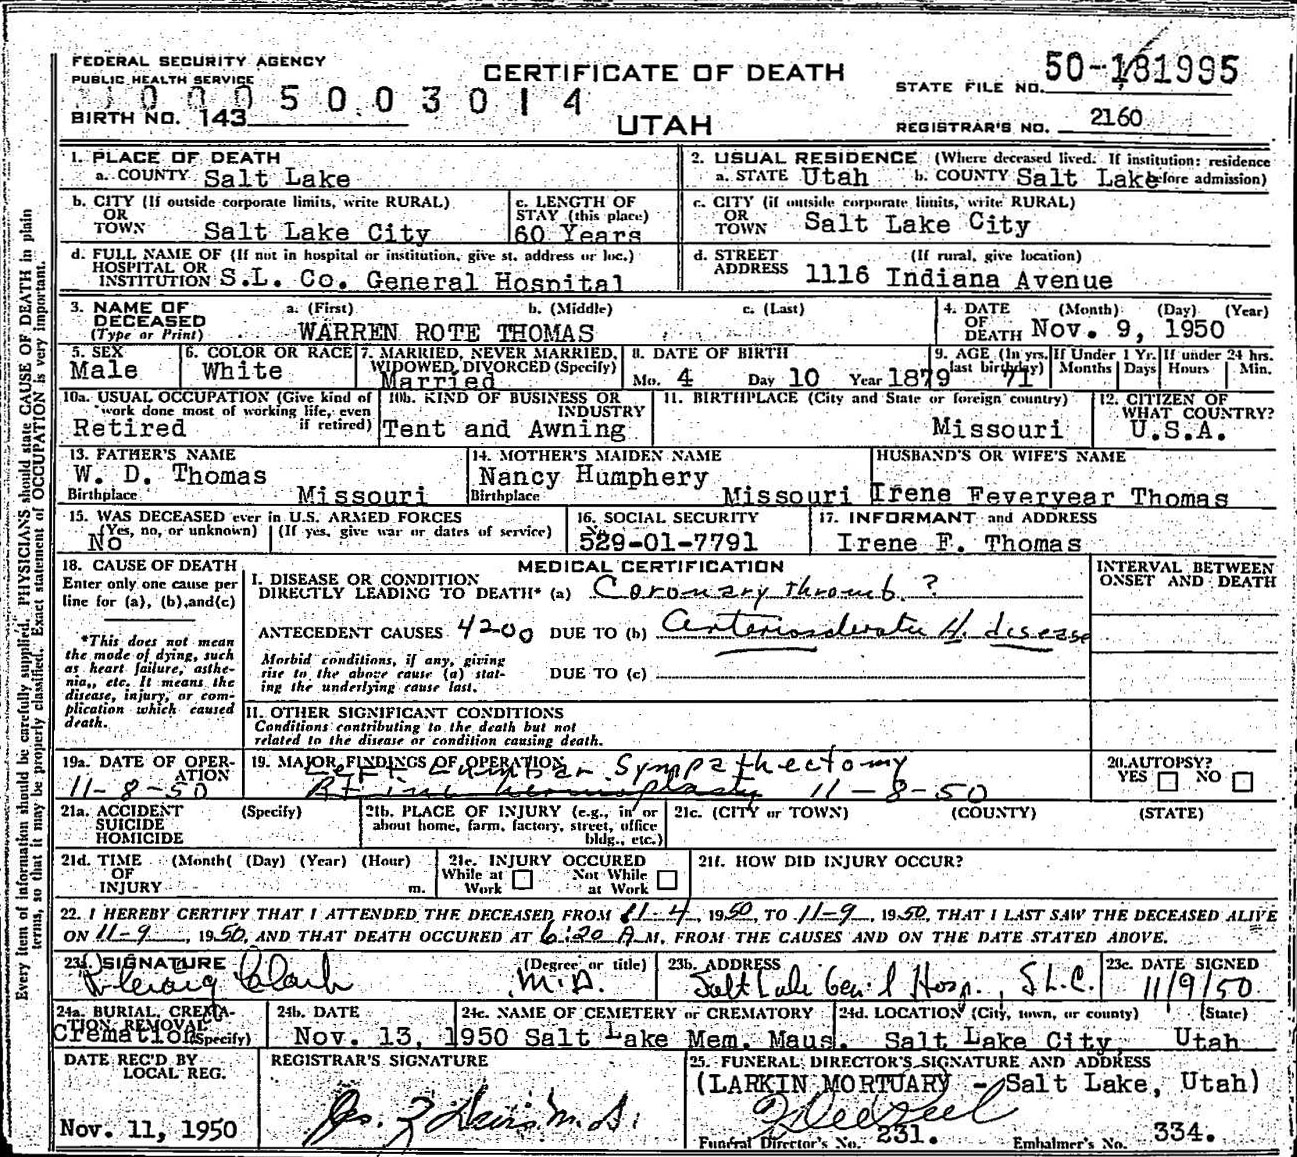 FEDERAL SECURITY AGENCY
PUBLIC HEALTH SERVICE
CERTIFICATE OF DEATH
STATE FILE NO. 50-181995
0005003014
BIRTH NO. 143
UTAH
REGISTRAR'S NO. 2160
1. PLACE OF DEATH
a. COUNTY Salt Lake
2. USUAL RESIDENCE (Where deceased lived. If institution: residence before admission)
a. STATE Utah b. COUNTY Salt Lake
b. CITY (If outside corporate limits, write RURAL)
OR
TOWN Salt Lake City
c. LENGTH OF
STAY (this place)
60 Years
c. CITY (if outside corporate limits, write RURAL)
OR
TOWN Salt Lake City
d. FULL NAME OF (If not in hospital or institution, give st. address or loc.)
HOSPITAL OR
INSTITUTION S.L. Co. General Hospital
d. STREET (If rural, give location)
ADDRESS 1116 Indiana Avenue
3. NAME OF a. (First) b. (Middle) c. (Last)
DECEASED
(Type or Print) WARREN ROTE THOMAS
4. DATE (Month) (Day) (Year)
OF
DEATH Nov. 9, 1950
5. SEX
Male
6. COLOR OR RACE
White
7. MARRIED, NEVER MARRIED,
WIDOWED, DIVORCED (Specify)
Married
8. DATE OF BIRTH
Mo. 4 Day 10 Year 1879
9. AGE (In yrs.
last birthday) 71
If Under 1 Yr.
Months Days
If under 24 hrs.
Hours Min.
10a. USUAL OCCUPATION (Give kind of
work done most of working life, even
if retired)
Retired
10b. KIND OF BUSINESS OR
INDUSTRY
Tent and Awning
11. BIRTHPLACE (City and State or foreign country)
Missouri
12. CITIZEN OF
WHAT COUNTRY?
U.S.A.
13. FATHER'S NAME
W. D. Thomas
Birthplace Missouri
14. MOTHER'S MAIDEN NAME
Nancy Humphery
Birthplace Missouri
HUSBAND'S OR WIFE'S NAME
Irene Feveryear Thomas
15. WAS DECEASED ever in U.S. ARMED FORCES
(Yes, no, or unknown) (If yes, give war or dates of service)
No
16. SOCIAL SECURITY
No.
529-01-7791
17. INFORMANT and ADDRESS
Irene F. Thomas
18. CAUSE OF DEATH
Enter only one cause per
line for (a), (b), and (c)
*This does not mean
the mode of dying, such
as heart failure, asthe-
nia, etc. It means the
disease, injury, or com-
plication which caused
death.
MEDICAL CERTIFICATION
I. DISEASE OR CONDITION
DIRECTLY LEADING TO DEATH* (a) Coronary thromb. ?
ANTECEDENT CAUSES 4200 DUE TO (b) Arteriosclerotic H. disease
Morbid conditions, if any, giving
rise to the above cause (a) stat-
ing the underlying cause last.
DUE TO (c)
II. OTHER SIGNIFICANT CONDITIONS
Conditions contributing to the death but not
related to the disease or condition causing death.
INTERVAL BETWEEN
ONSET AND DEATH
19a. DATE OF OPER-
ATION
11-8-50
19. MAJOR FINDINGS OF OPERATION
Left Lumbar Sympathectomy
11-8-50
20. AUTOPSY?
YES NO
21a. ACCIDENT (Specify)
SUICIDE
HOMICIDE
21b. PLACE OF INJURY (e.g., in or
about home, farm, factory, street, office
bldg., etc.)
21c. (CITY or TOWN) (COUNTY) (STATE)
21d. TIME (Month( (Day) (Year) (Hour)
OF
INJURY m.
21e. INJURY OCCURED
While at Not While
Work at Work
21f. HOW DID INJURY OCCUR?
22. I HEREBY CERTIFY THAT I ATTENDED THE DECEASED FROM 11-4, 1950, TO 11-9, 1950, THAT I LAST SAW THE DECEASED ALIVE
ON 11-9, 1950, AND THAT DEATH OCCURED AT 6:20 A M. FROM THE CAUSES AND ON THE DATE STATED ABOVE.
23a. SIGNATURE (Degree or title)
Craig Clark M.D.
23b. ADDRESS
Salt Lake Gen'l Hosp., S.L.C.
23c. DATE SIGNED
11/9/50
24a. BURIAL, CREMA-
TION, REMOVAL
(Specify)
Cremation
24b. DATE
Nov. 13, 1950
24c. NAME OF CEMETERY or CREMATORY
Salt Lake Mem. Maus.
24d. LOCATION (City, town, or county) (State)
Salt Lake City Utah
DATE REC'D BY
LOCAL REG.
Nov. 11, 1950
REGISTRAR'S SIGNATURE
M.D.
25. FUNERAL DIRECTOR'S SIGNATURE AND ADDRESS
(LARKIN MORTUARY - Salt Lake, Utah)
Funeral Director's No. 231. Embalmer's No. 334.
Every item of information should be carefully supplied. PHYSICIANS should state CAUSE OF DEATH in plain
terms, so that it may be properly classified. Exact statement of OCCUPATION is very important.